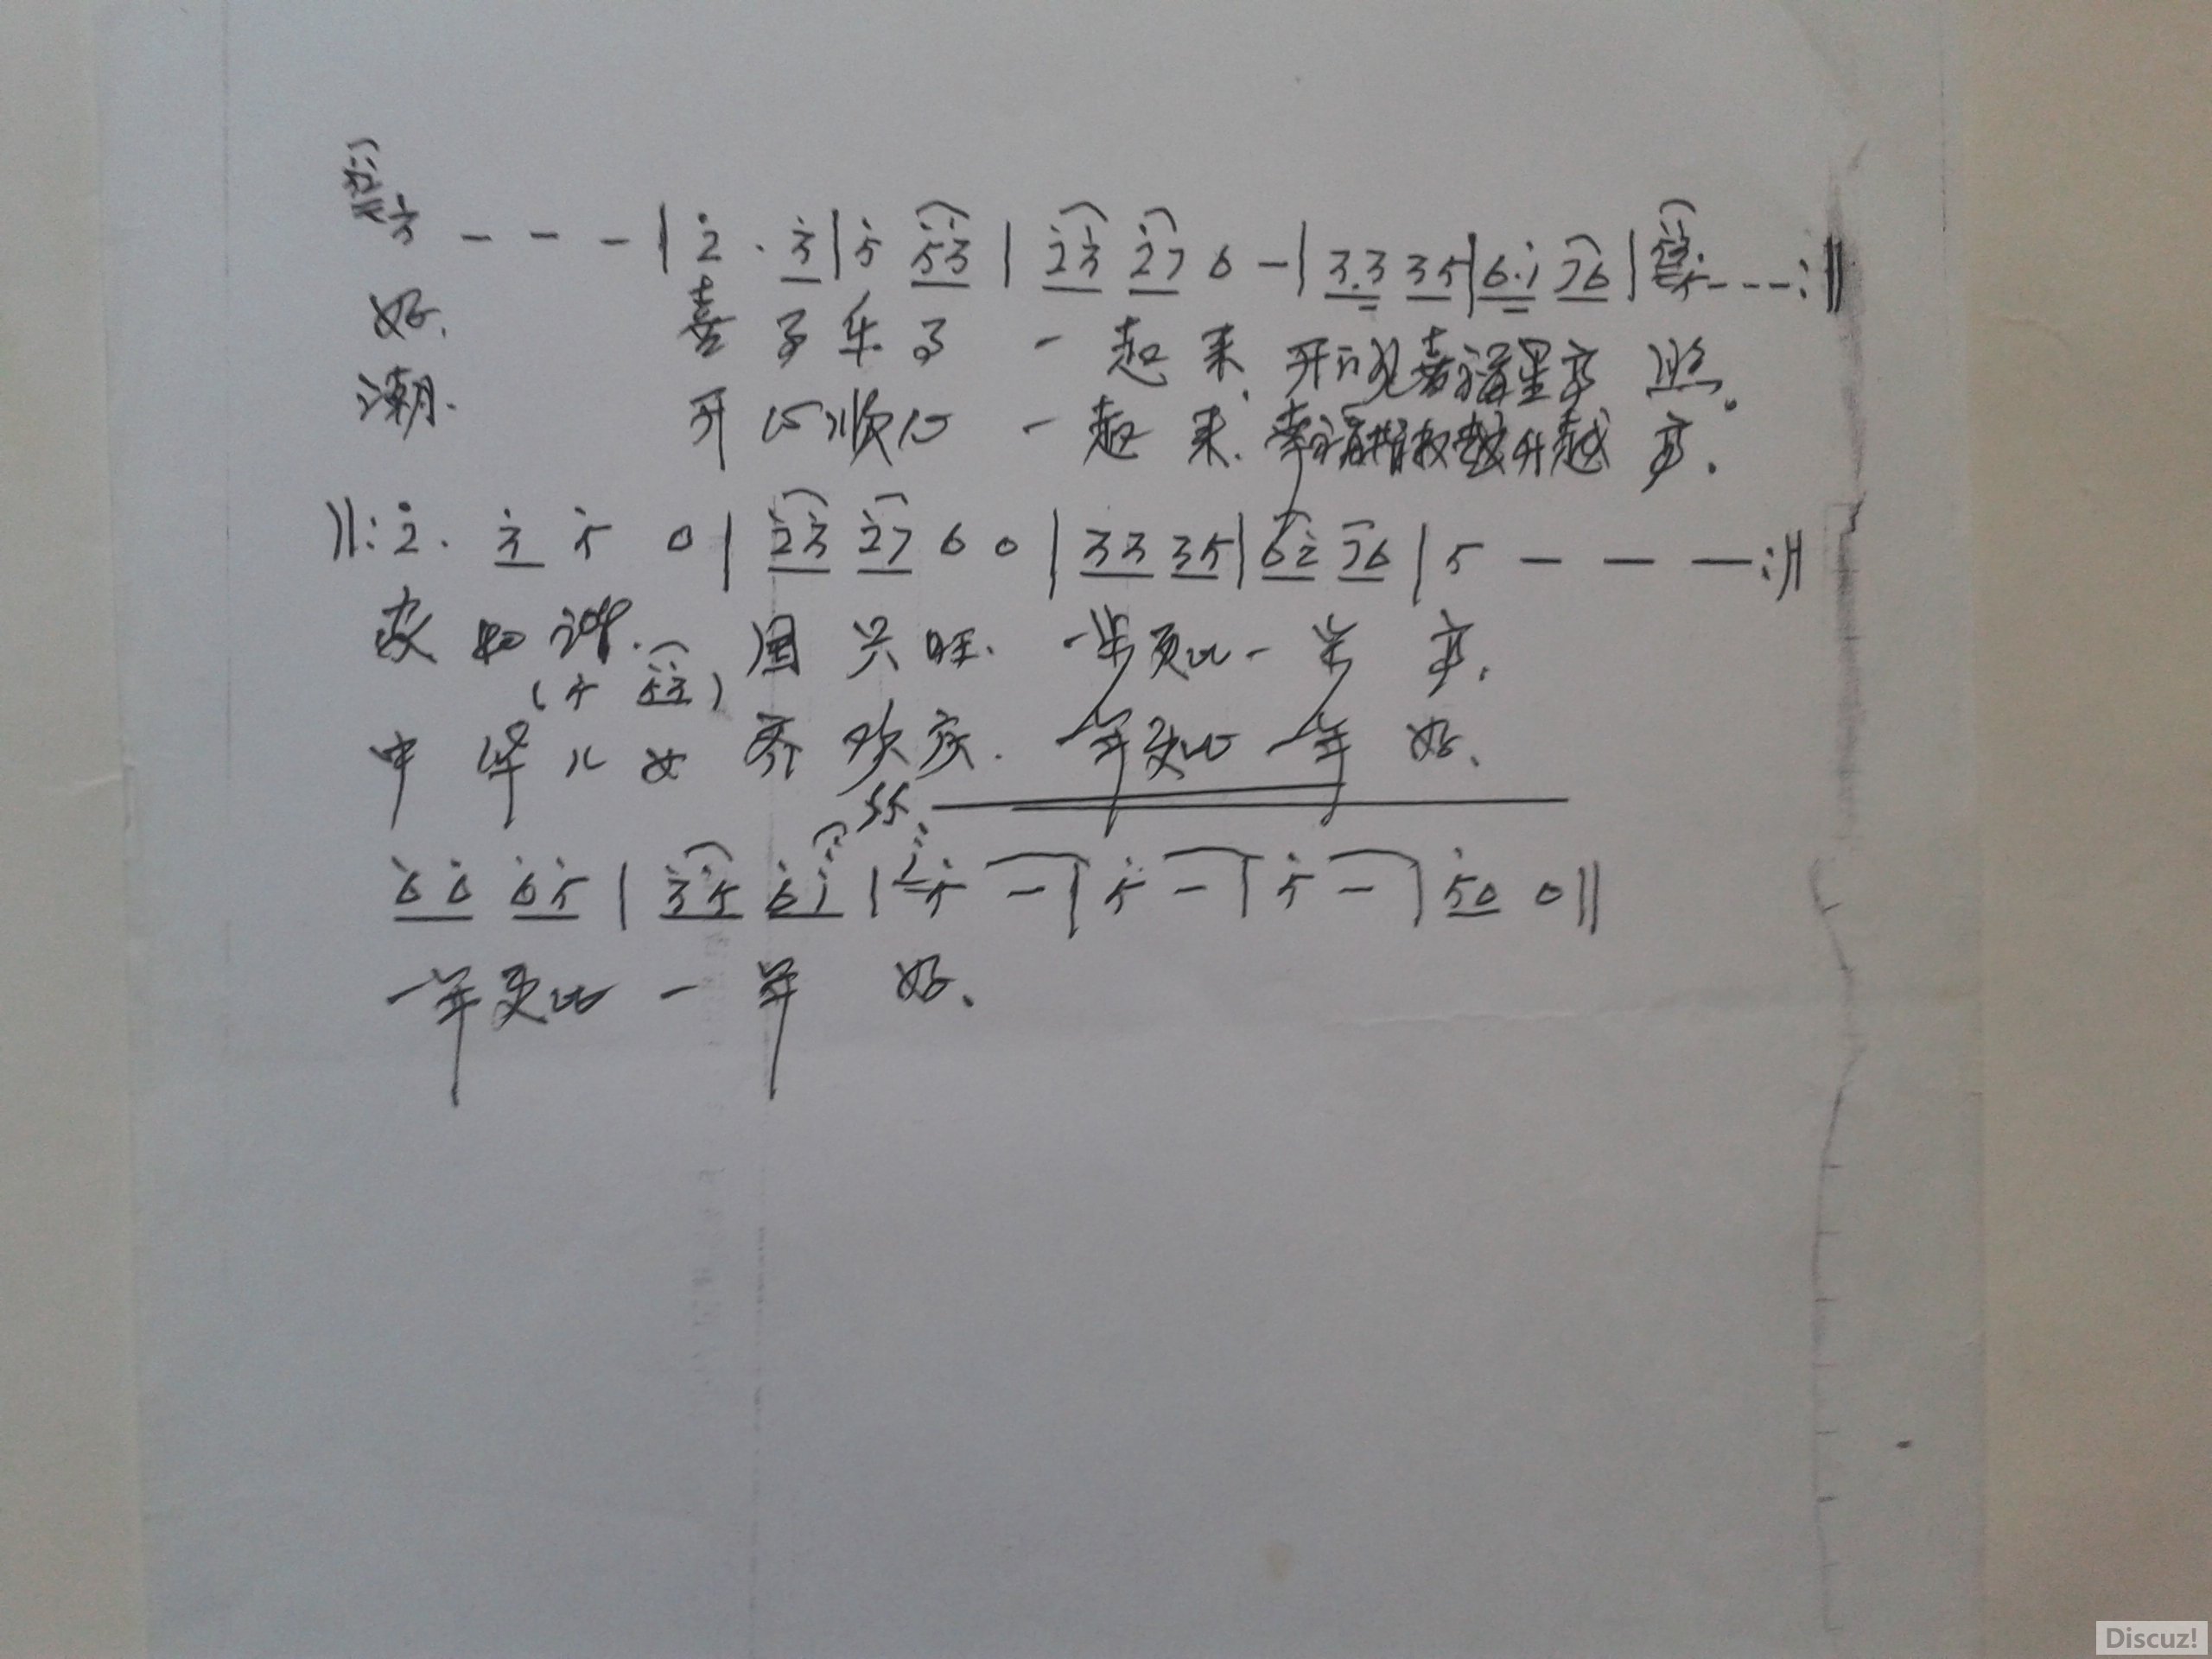 3 - - - | 2 · 3 | 5 53 | 23 27 6 - | 3.3 35 | 6.1 76 | 5 - - - :||
好. 喜了乐了一起来, 开门见喜福星高照.
潮. 开心顺心一起来. 幸福指数越升越高.
||: 2 · 3 5 0 | 23 27 6 0 | 33 35 | 62 76 | 5 - - - :||
家和谐. 国兴旺. 一步更比一步高.
(5 53)
中华儿女齐欢庆. 一年更比一年好.
55
66 65 | 35 61 | 5 - | 5 - | 5 - | 50 0 ||
一年更比一年好.
Discuz!